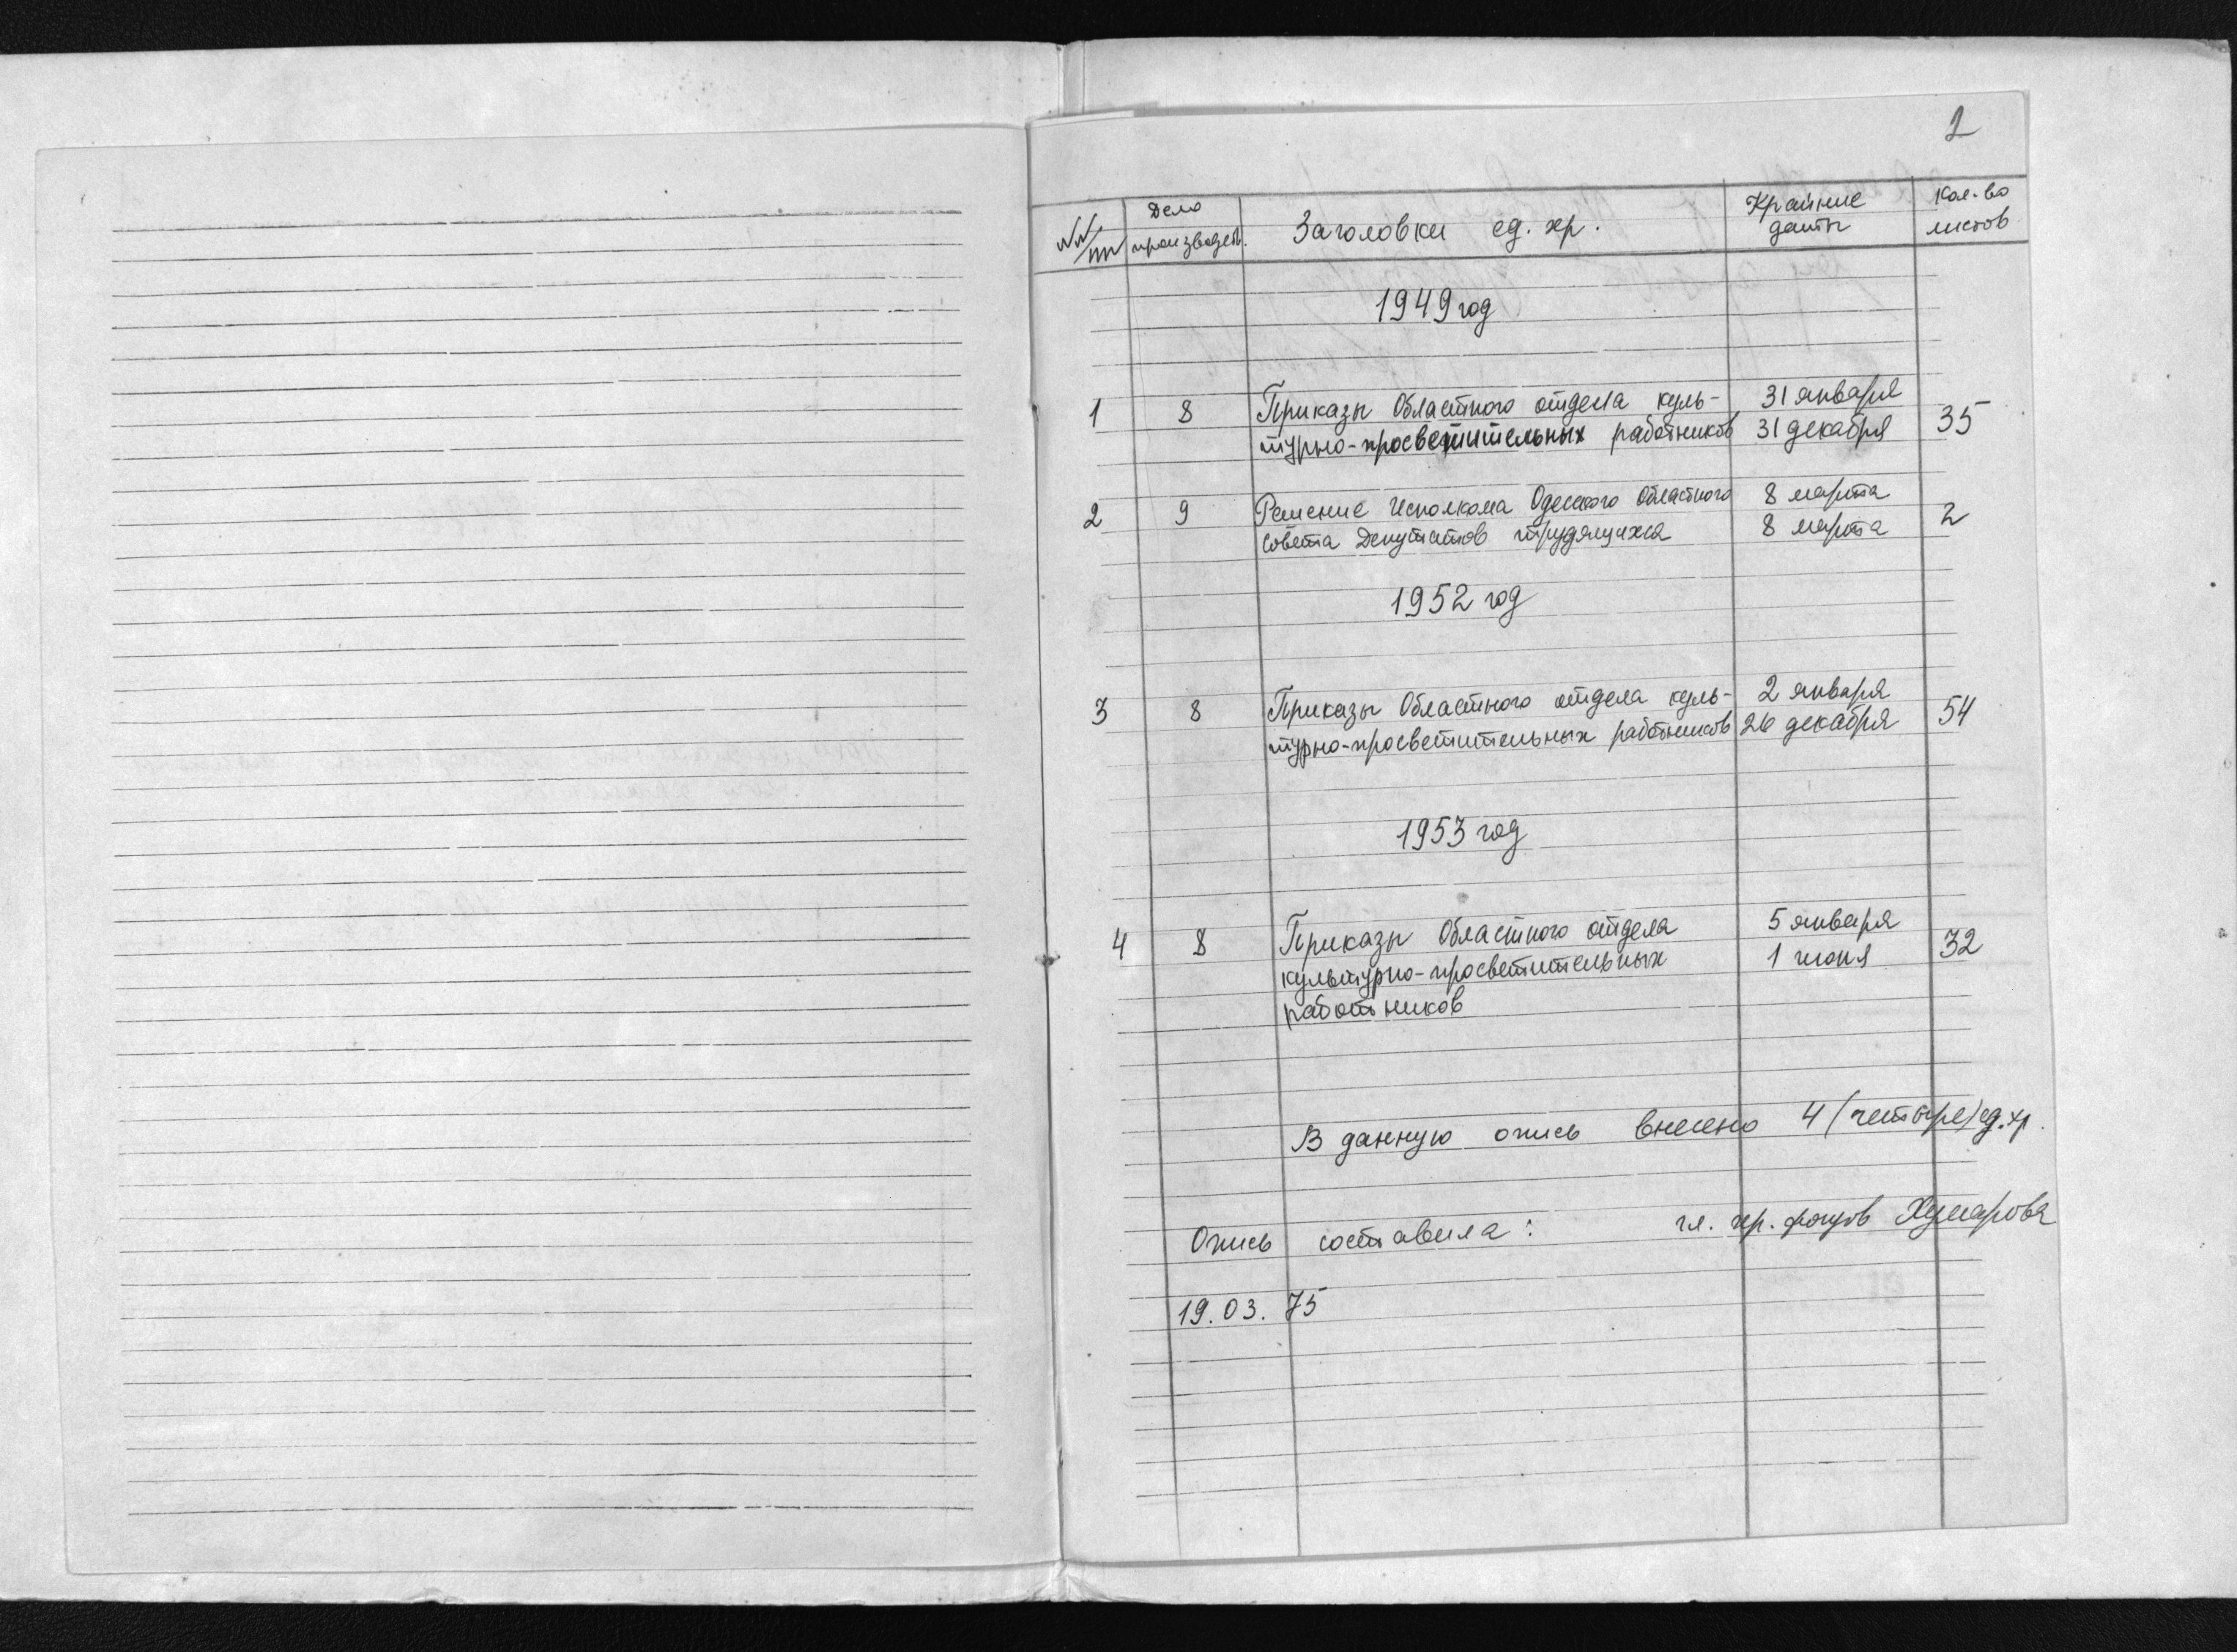 2
№№ пп
Дело производств.
Заголовки ед. хр.
Крайние даты
Кол-во листов
1949 год
1 8 Приказы Областного отдела куль- 31 января
турно-просветительных работников 31 декабря 35
2 9 Решение Исполкома Одесского Областного 8 марта
Совета Депутатов трудящихся 8 марта 2
1952 год
3 8 Приказы Областного отдела куль- 2 января
турно-просветительных работников 26 декабря 54
1953 год
4 8 Приказы Областного отдела 5 января
культурно-просветительных 1 июня 32
работников
В данную опись внесено 4 (четыре) ед. хр.
Опись составила: гл. хр. фондов Хумарова
19.03.75